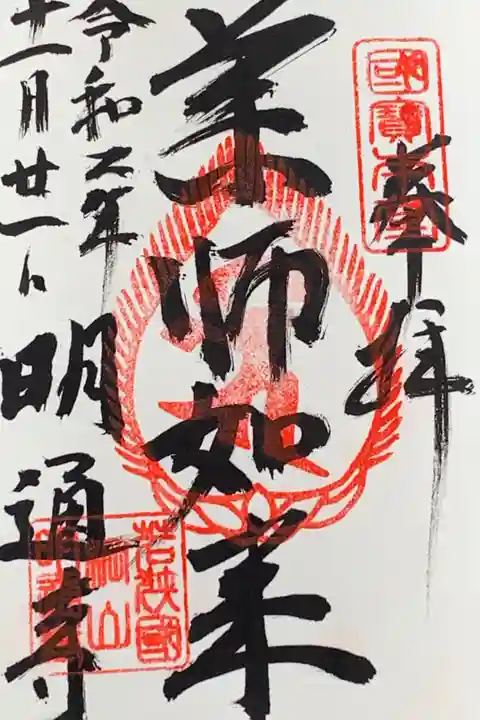 國寶本堂
奉拝
薬師如来
令和元年
十一月廿一日
明通寺
若狭國
棡山
明通寺